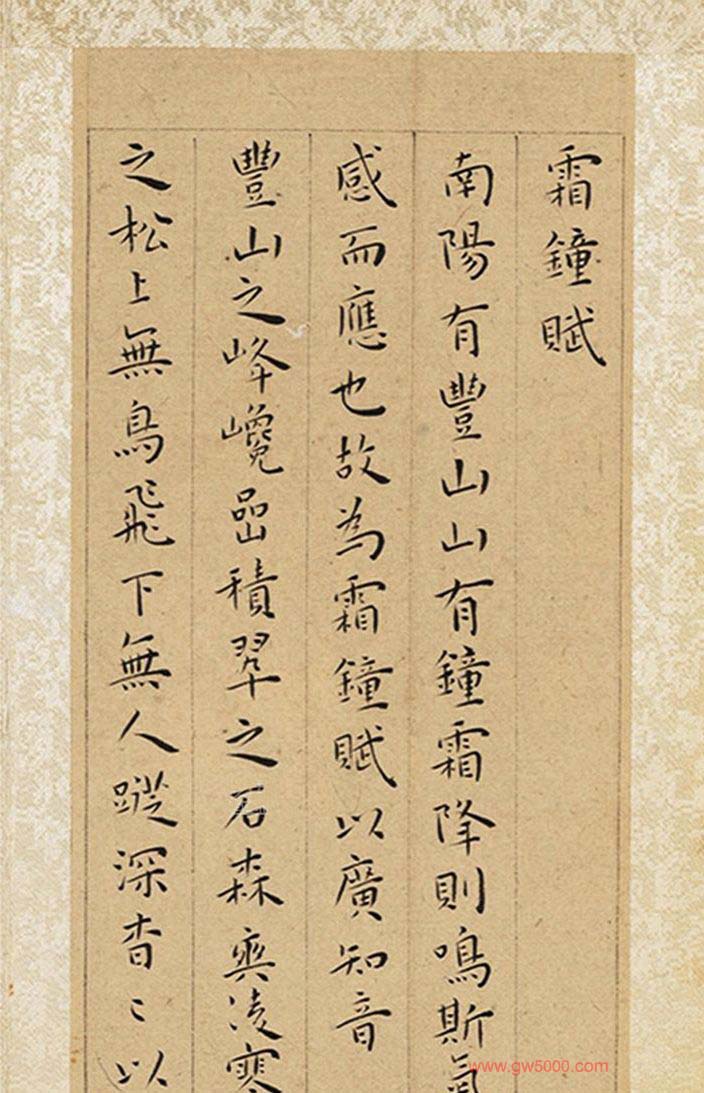 霜鐘賦
南陽有豐山山有鐘霜降則鳴斯氣
感而應也故為霜鐘賦以廣知音
豐山之峰巉嵒積翠之石森爽凌寒
之松上無鳥飛下無人蹤深杳〻以
www.gw5000.com